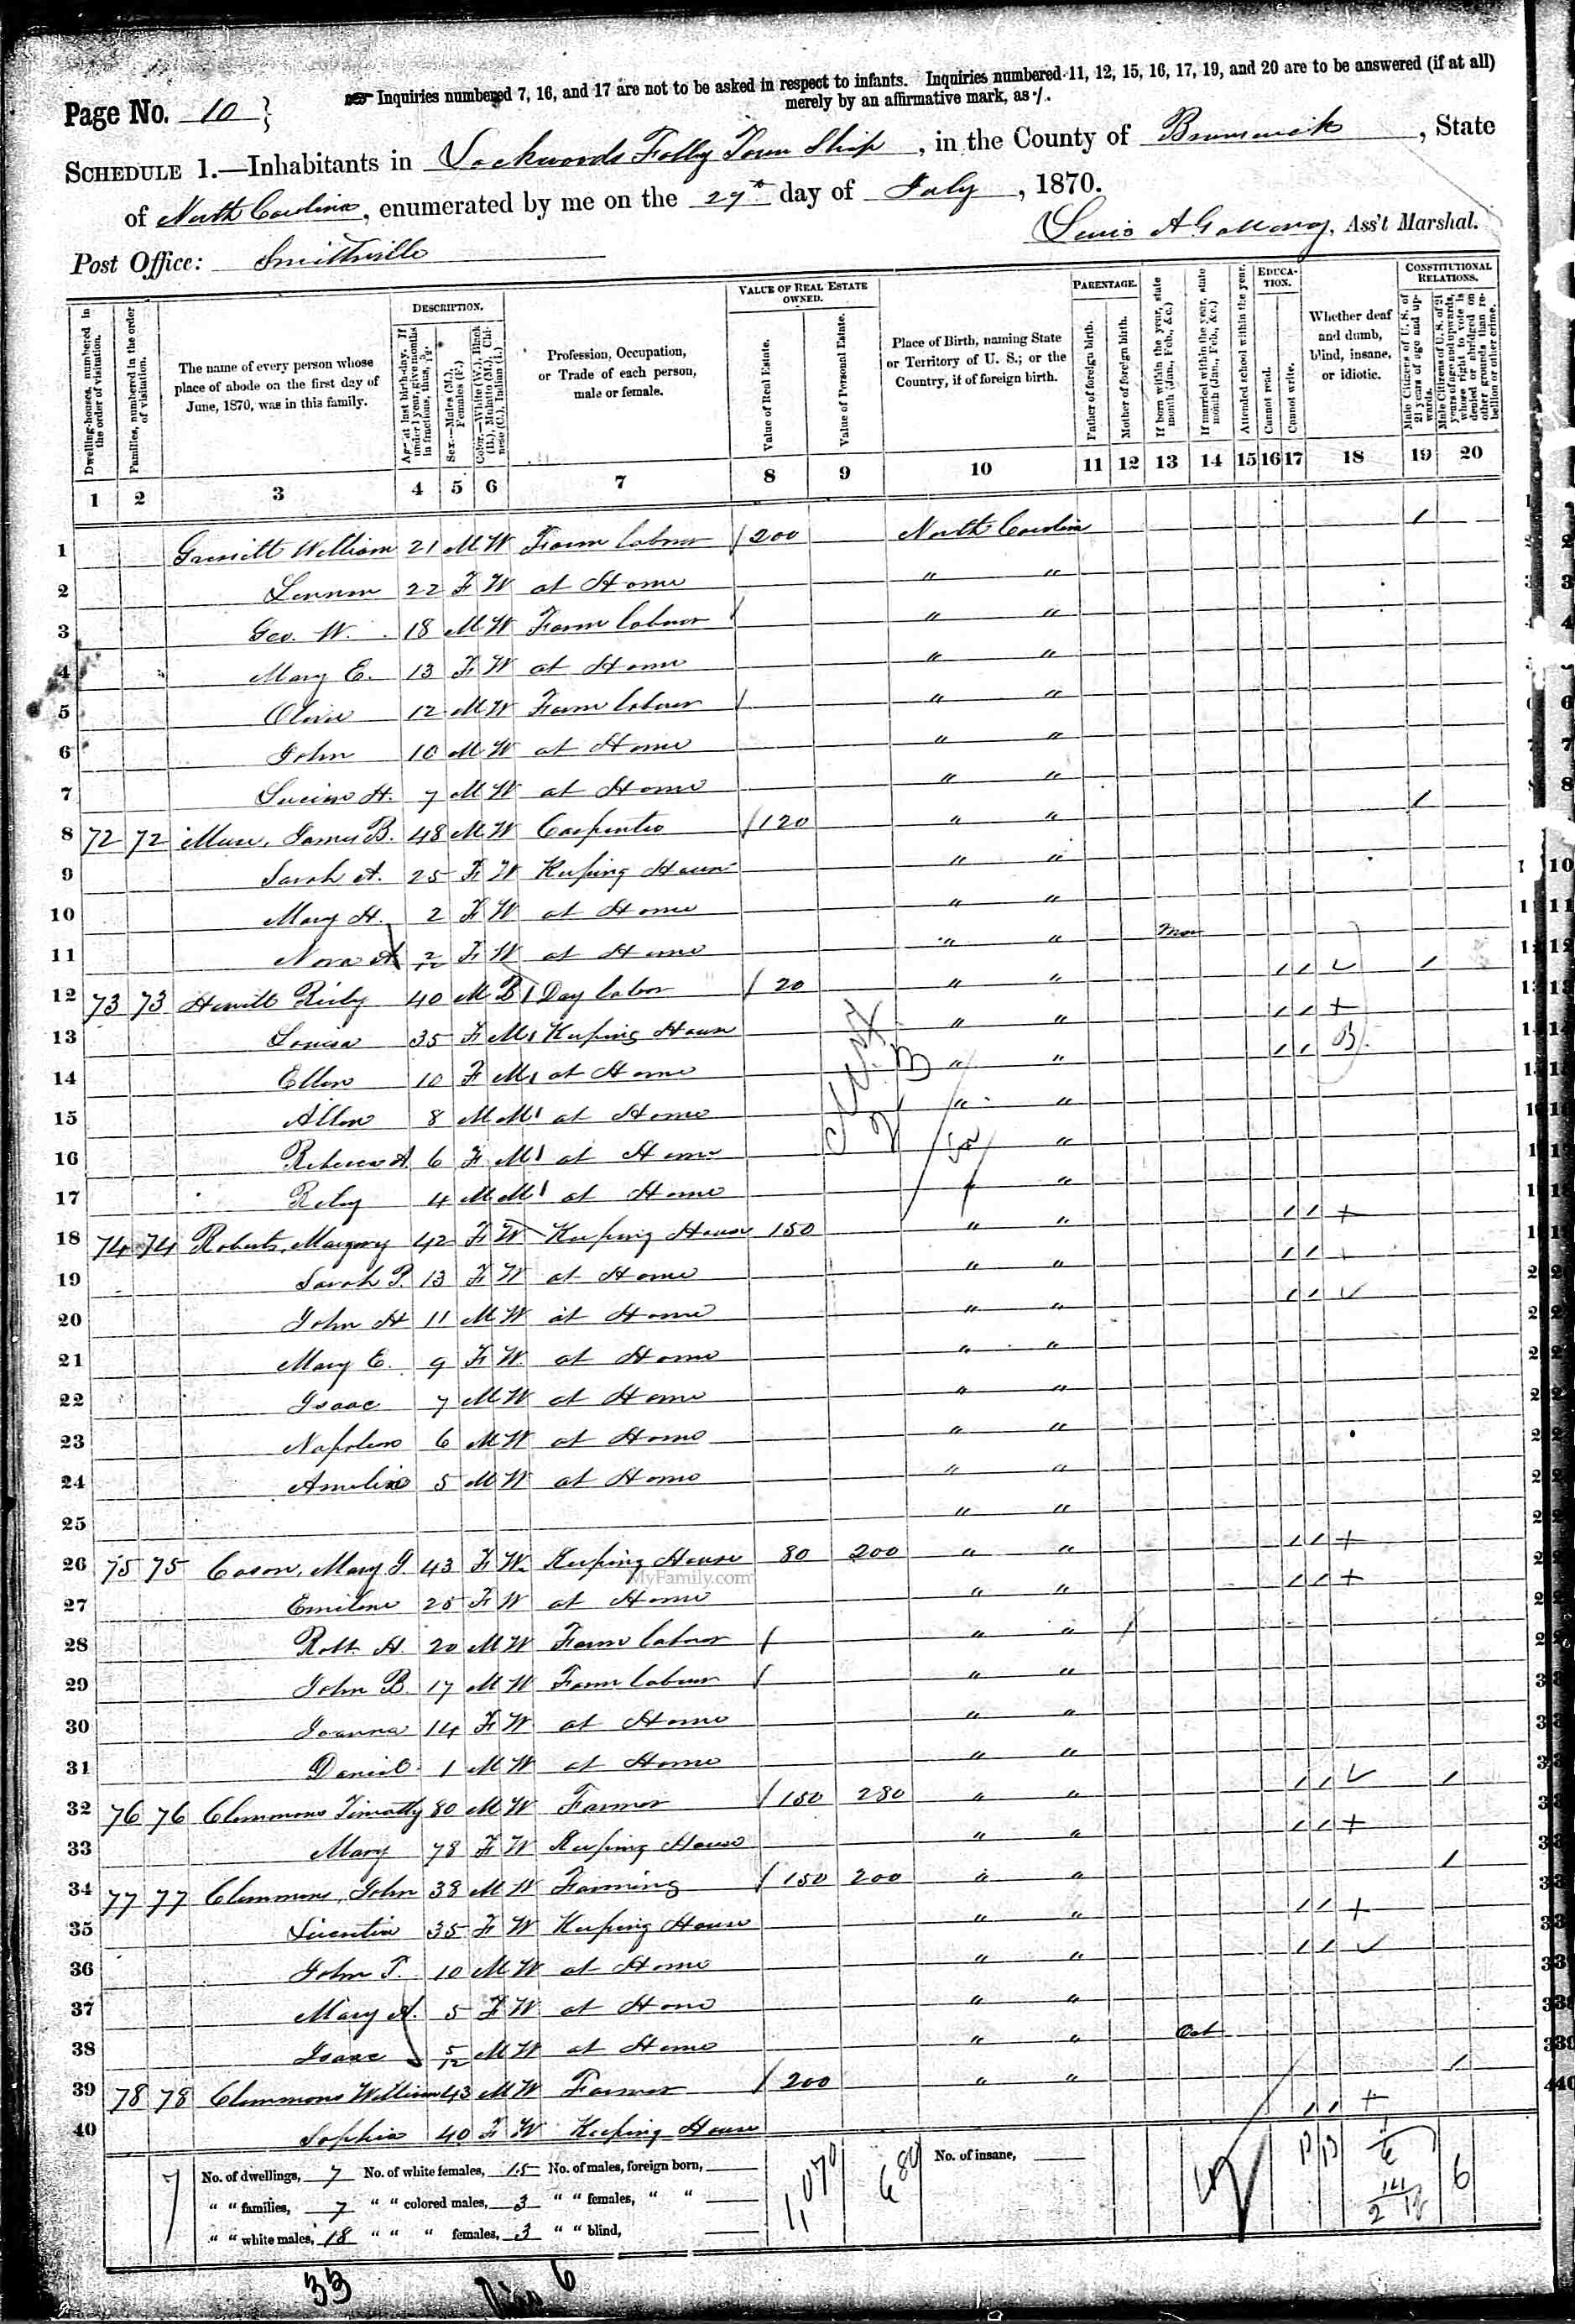 Inquiries numbered 7, 16, and 17 are not to be asked in respect to infants. Inquiries numbered 11, 12, 15, 16, 17, 19, and 20 are to be answered (if at all)
merely by an affirmative mark, as /.
Page No. 10
SCHEDULE 1.—Inhabitants in Lockwoods Folly Town Ship, in the County of Brunswick, State
of North Carolina, enumerated by me on the 27th day of July, 1870.
Post Office: Smithville
A Galloway, Ass't Marshal.
DESCRIPTION.
VALUE OF REAL ESTATE OWNED.
PARENTAGE.
EDUCATION.
CONSTITUTIONAL RELATIONS.
Dwelling-houses, numbered in the order of visitation.
Families, numbered in the order of visitation.
The name of every person whose place of abode on the first day of June, 1870, was in this family.
Age at last birth-day. If under 1 year, give months in fractions, thus, 3/12.
Sex.—Males (M.), Females (F.)
Color.—White (W.), Black (B.), Mulatto (M.), Chinese (C.), Indian (I.)
Profession, Occupation, or Trade of each person, male or female.
Value of Real Estate.
Value of Personal Estate.
Place of Birth, naming State or Territory of U. S.; or the Country, if of foreign birth.
Father of foreign birth.
Mother of foreign birth.
If born within the year, state month (Jan., Feb., &c.)
If married within the year, state month (Jan., Feb., &c.)
Attended school within the year.
Cannot read.
Cannot write.
Whether deaf and dumb, blind, insane, or idiotic.
Male Citizens of U. S. of 21 years of age and upwards.
Male Citizens of U. S. of 21 years of age and upwards, whose right to vote is denied or abridged on other grounds than rebellion or other crime.
1 2 3 4 5 6 7 8 9 10 11 12 13 14 15 16 17 18 19 20
1 William 21 M W Farm labour / 200 North Carolina /
2 22 F W at Home " "
3 Geo. W. 18 M W Farm labour / " "
4 Mary E. 13 F W at Home " "
5 12 M W Farm labour / " "
6 John 10 M W at Home " "
7 H. 7 M W at Home " "
8 72 72 James B. 48 M W Carpenter / 120 " " /
9 Sarah A. 25 F W Keeping House " "
10 Mary H. 2 F W at Home " "
11 Nora A 2/12 F W at Home " "
12 73 73 Hewitt 40 M B / Day labor / 20 " " / / ✓ /
13 Louisa 35 F M / Keeping House " " / / +
14 Ellen 10 F M / at Home " " / /
15 Allen 8 M M / at Home " "
16 Rebecca A 6 F M / at Home "
17 4 M M / at Home " "
18 74 74 Roberts, Margery 42 F W Keeping House 150 " " / / +
19 Sarah P. 13 F W at Home " " / / +
20 John H 11 M W at Home " " / / ✓
21 Mary E. 9 F W at Home " "
22 Isaac 7 M W at Home " "
23 Napoleon 6 M W at Home " "
24 5 M W at Home " "
25 " "
26 75 75 Cason, Mary J. 43 F W Keeping House 80 200 " " / / +
MyFamily.com
27 Emiline 25 F W at Home " " / / +
28 Robt. H. 20 M W Farm labour / " " /
29 John B. 17 M W Farm labour / " "
30 Joanna 14 F W at Home " "
31 Daniel 1 M W at Home " "
32 76 76 Clemmons Timothy 80 M W Farmer / 150 280 " " / / ✓ /
33 Mary 78 F W Keeping House " " / / +
34 77 77 Clemmons, John 38 M W Farming / 150 200 " " /
35 35 F W Keeping House " " / / +
36 John T. 10 M W at Home " " / / ✓
37 Mary A. 5 F W at Home " "
38 Isaac 5/12 M W at Home " " Oct
39 78 78 Clemmons William 43 M W Farmer / 200 " " /
40 Sophia 40 F W Keeping House / / +
No. of dwellings, 7 No. of white females, 15 No. of males, foreign born, No. of insane,
" " families, 7 " " colored males, 3 " " females, " "
" " white males, 18 " " " females, 3 " " blind,
33
6